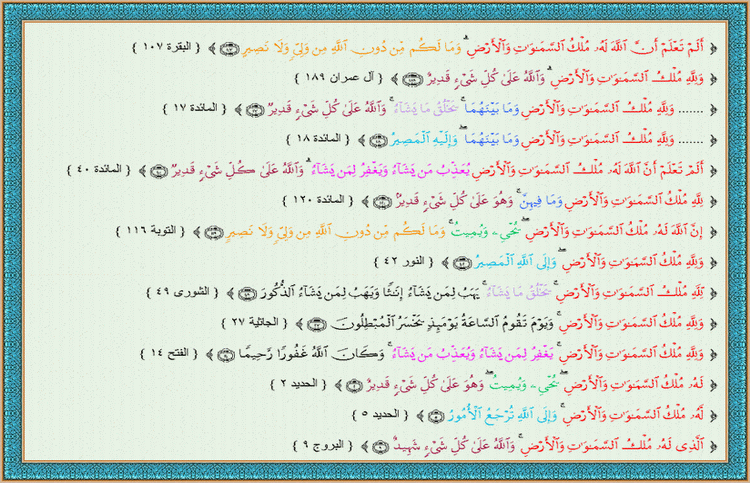 ﴿ أَلَمْ تَعْلَمْ أَنَّ اللَّهَ لَهُ مُلْكُ السَّمَاوَاتِ وَالْأَرْضِ ۗ وَمَا لَكُم مِّن دُونِ اللَّهِ مِن وَلِيٍّ وَلَا نَصِيرٍ ﴾ { البقرة ١٠٧ }
﴿ وَلِلَّهِ مُلْكُ السَّمَاوَاتِ وَالْأَرْضِ ۗ وَاللَّهُ عَلَىٰ كُلِّ شَيْءٍ قَدِيرٌ ﴾ { آل عمران ١٨٩ }
﴿ ....... وَلِلَّهِ مُلْكُ السَّمَاوَاتِ وَالْأَرْضِ وَمَا بَيْنَهُمَا ۚ يَخْلُقُ مَا يَشَاءُ ۚ وَاللَّهُ عَلَىٰ كُلِّ شَيْءٍ قَدِيرٌ ﴾ { المائدة ١٧ }
﴿ ....... وَلِلَّهِ مُلْكُ السَّمَاوَاتِ وَالْأَرْضِ وَمَا بَيْنَهُمَا ۖ وَإِلَيْهِ الْمَصِيرُ ﴾ { المائدة ١٨ }
﴿ أَلَمْ تَعْلَمْ أَنَّ اللَّهَ لَهُ مُلْكُ السَّمَاوَاتِ وَالْأَرْضِ يُعَذِّبُ مَن يَشَاءُ وَيَغْفِرُ لِمَن يَشَاءُ ۗ وَاللَّهُ عَلَىٰ كُلِّ شَيْءٍ قَدِيرٌ ﴾ { المائدة ٤٠ }
﴿ لِلَّهِ مُلْكُ السَّمَاوَاتِ وَالْأَرْضِ وَمَا فِيهِنَّ ۚ وَهُوَ عَلَىٰ كُلِّ شَيْءٍ قَدِيرٌ ﴾ { المائدة ١٢٠ }
﴿ إِنَّ اللَّهَ لَهُ مُلْكُ السَّمَاوَاتِ وَالْأَرْضِ ۖ يُحْيِي وَيُمِيتُ ۚ وَمَا لَكُم مِّن دُونِ اللَّهِ مِن وَلِيٍّ وَلَا نَصِيرٍ ﴾ { التوبة ١١٦ }
﴿ وَلِلَّهِ مُلْكُ السَّمَاوَاتِ وَالْأَرْضِ ۖ وَإِلَى اللَّهِ الْمَصِيرُ ﴾ { النور ٤٢ }
﴿ لِلَّهِ مُلْكُ السَّمَاوَاتِ وَالْأَرْضِ ۚ يَخْلُقُ مَا يَشَاءُ ۚ يَهَبُ لِمَن يَشَاءُ إِنَاثًا وَيَهَبُ لِمَن يَشَاءُ الذُّكُورَ ﴾ { الشورى ٤٩ }
﴿ وَلِلَّهِ مُلْكُ السَّمَاوَاتِ وَالْأَرْضِ ۚ وَيَوْمَ تَقُومُ السَّاعَةُ يَوْمَئِذٍ يَخْسَرُ الْمُبْطِلُونَ ﴾ { الجاثية ٢٧ }
﴿ وَلِلَّهِ مُلْكُ السَّمَاوَاتِ وَالْأَرْضِ ۚ يَغْفِرُ لِمَن يَشَاءُ وَيُعَذِّبُ مَن يَشَاءُ ۚ وَكَانَ اللَّهُ غَفُورًا رَّحِيمًا ﴾ { الفتح ١٤ }
﴿ لَهُ مُلْكُ السَّمَاوَاتِ وَالْأَرْضِ ۖ يُحْيِي وَيُمِيتُ ۖ وَهُوَ عَلَىٰ كُلِّ شَيْءٍ قَدِيرٌ ﴾ { الحديد ٢ }
﴿ لَّهُ مُلْكُ السَّمَاوَاتِ وَالْأَرْضِ ۚ وَإِلَى اللَّهِ تُرْجَعُ الْأُمُورُ ﴾ { الحديد ٥ }
﴿ الَّذِي لَهُ مُلْكُ السَّمَاوَاتِ وَالْأَرْضِ ۚ وَاللَّهُ عَلَىٰ كُلِّ شَيْءٍ شَهِيدٌ ﴾ { البروج ٩ }